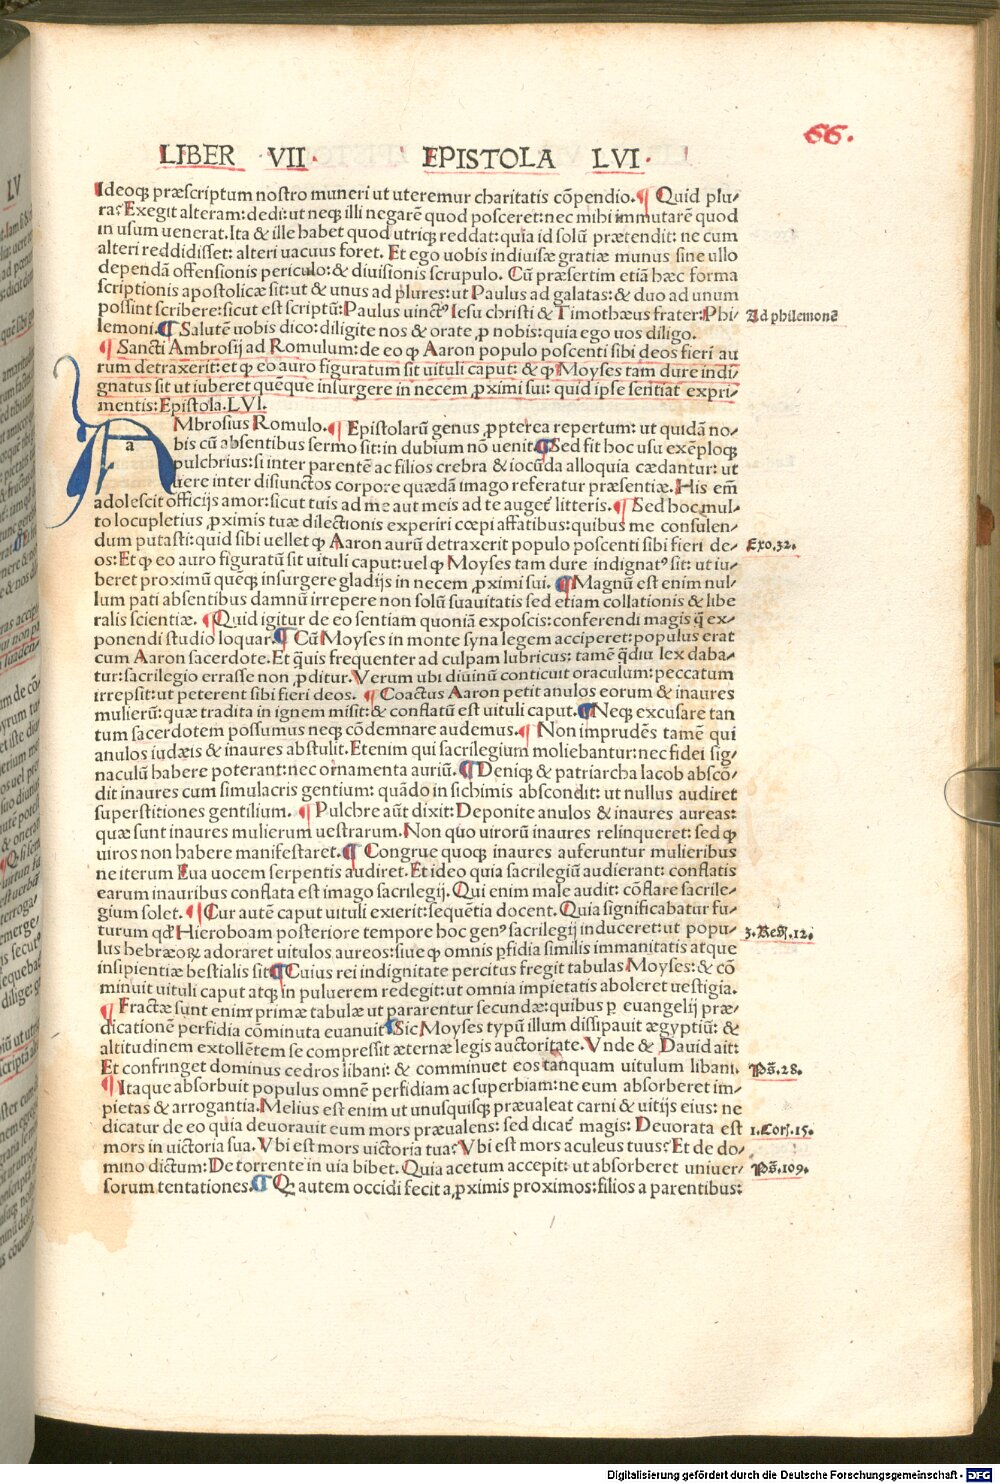 66.
LIBER VII. EPISTOLA LVI.
Ideoq; præscriptum nostro muneri ut uteremur charitatis cōpendio. ¶ Quid plu-
ra? Exegit alteram: dedi: ut neq; illi negarē quod posceret: nec mihi immutarē quod
in usum uenerat. Ita & ille habet quod utriq; reddat: quia id solū prætendit: ne cum
alteri reddidisset: alteri vacuus foret. Et ego uobis indiuisæ gratiæ munus sine ullo
dependā offensionis periculo: & diuisionis scrupulo. Cū præsertim etiā hæc forma
scriptionis apostolicæ sit: ut & unus ad plures: ut Paulus ad galatas: & duo ad unum
possint scribere: sicut est scriptū: Paulus uinctꝰ Iesu christi & Timothæus frater: Phi- Ad philemonē
lemoni. ¶ Salutē uobis dico: diligite nos & orate ꝓ nobis: quia ego uos diligo.
¶ Sancti Ambrosij ad Romulum: de eo ꝙ Aaron populo poscenti sibi deos fieri au
rum detraxerit: et ꝙ eo auro figuratum sit uituli caput: & ꝙ Moyses tam dure indi
gnatus sit ut iuberet quēque insurgere in necem ꝓximi sui: quid ipse sentiat expri-
mentis: Epistola. LVI.
a
AMbrosius Romulo. ¶ Epistolarū genus ꝓpterea repertum: ut quidā no-
bis cū absentibus sermo sit: in dubium nō uenit. ¶ Sed fit hoc usu exēploq;
pulchrius: si inter parentē ac filios crebra & iocūda alloquia cædantur: ut
uere inter disiunctos corpore quædā imago referatur præsentiæ. His em̄
adolescit officijs amor: sicut tuis ad me aut meis ad te auget̄ litteris. ¶ Sed hoc mul-
to locupletius ꝓximis tuæ dilectionis experiri cœpi affatibus: quibus me consulen-
dum putasti: quid sibi uellet ꝙ Aaron aurū detraxerit populo poscenti sibi fieri de- Exo. 32.
os: Et ꝙ eo auro figuratū sit uituli caput: uel ꝙ Moyses tam dure indignatꝰ sit: ut iu-
beret proximū quēq; insurgere gladijs in necem ꝓximi sui. ¶ Magnū est enim nul-
lum pati absentibus damnū irrepere non solū suauitatis sed etiam collationis & libe
ralis scientiæ. ¶ Quid igitur de eo sentiam quoniā exposcis: conferendi magis q̄ ex-
ponendi studio loquar. ¶ Cū Moyses in monte syna legem acciperet: populus erat
cum Aaron sacerdote. Et q̄uis frequenter ad culpam lubricus: tamē q̄diu lex daba-
tur: sacrilegio errasse non ꝓditur. Verum ubi diuinū conticuit oraculum: peccatum
irrepsit: ut peterent sibi fieri deos. ¶ Coactus Aaron petit anulos eorum & inaures
mulierū: quæ tradita in ignem misit: & conflatū est uituli caput. ¶ Neq; excusare tan
tum sacerdotem possumus neq; cōdemnare audemus. ¶ Non imprudēs tamē qui
anulos iudæis & inaures abstulit. Etenim qui sacrilegium moliebantur: nec fidei sig-
naculū habere poterant: nec ornamenta auriū. ¶ Deniq; & patriarcha Iacob abscō-
dit inaures cum simulacris gentium: quādo in sichimis abscondit: ut nullus audiret
superstitiones gentilium. ¶ Pulchre aūt dixit: Deponite anulos & inaures aureas:
quæ sunt inaures mulierum uestrarum. Non quo uirorū inaures relinqueret: sed ꝙ
uiros non habere manifestaret. ¶ Congrue quoq; inaures auferuntur mulieribus
ne iterum Eua uocem serpentis audiret. Et ideo quia sacrilegiū audierant: conflatis
earum inauribus conflata est imago sacrilegij. Qui enim male audit: cōflare sacrile-
gium solet. ¶ Cur autē caput uituli exierit: sequētia docent. Quia significabatur fu-
turum qd̄ Hieroboam posteriore tempore hoc genꝰ sacrilegij induceret: ut popu- 3. Reg. 12.
lus hebræoꝝ adoraret uitulos aureos: siue ꝙ omnis ꝑfidia similis immanitatis atque
insipientiæ bestialis sit. ¶ Cuius rei indignitate percitus fregit tabulas Moyses: & cō
minuit uituli caput atq; in puluerem redegit: ut omnia impietatis aboleret uestigia.
¶ Fractæ sunt enim primæ tabulæ ut pararentur secundæ: quibus ꝑ euangelij præ-
dicationē perfidia cōminuta euanuit. ¶ Sic Moyses typū illum dissipauit ægyptiū: &
altitudinem extollētem se compressit æternæ legis auctoritate. Vnde & Dauid ait:
Et confringet dominus cedros libani: & comminuet eos tanquam uitulum libani. Ps. 28.
¶ Itaque absorbuit populus omnē perfidiam ac superbiam: ne eum absorberet im-
pietas & arrogantia. Melius est enim ut unusquisq; præualeat carni & uitijs eius: ne
dicatur de eo quia deuorauit eum mors præualens: sed dicat̄ magis: Deuorata est 1. Cor. 15.
mors in uictoria sua. Vbi est mors uictoria tua? Vbi est mors aculeus tuus? Et de do-
mino dictum: De torrente in uia bibet. Quia acetum accepit: ut absorberet uniuer- Ps. 109.
sorum tentationes. ¶ Qꝫ autem occidi fecit a ꝓximis proximos: filios a parentibus:
Digitalisierung gefördert durch die Deutsche Forschungsgemeinschaft - DFG